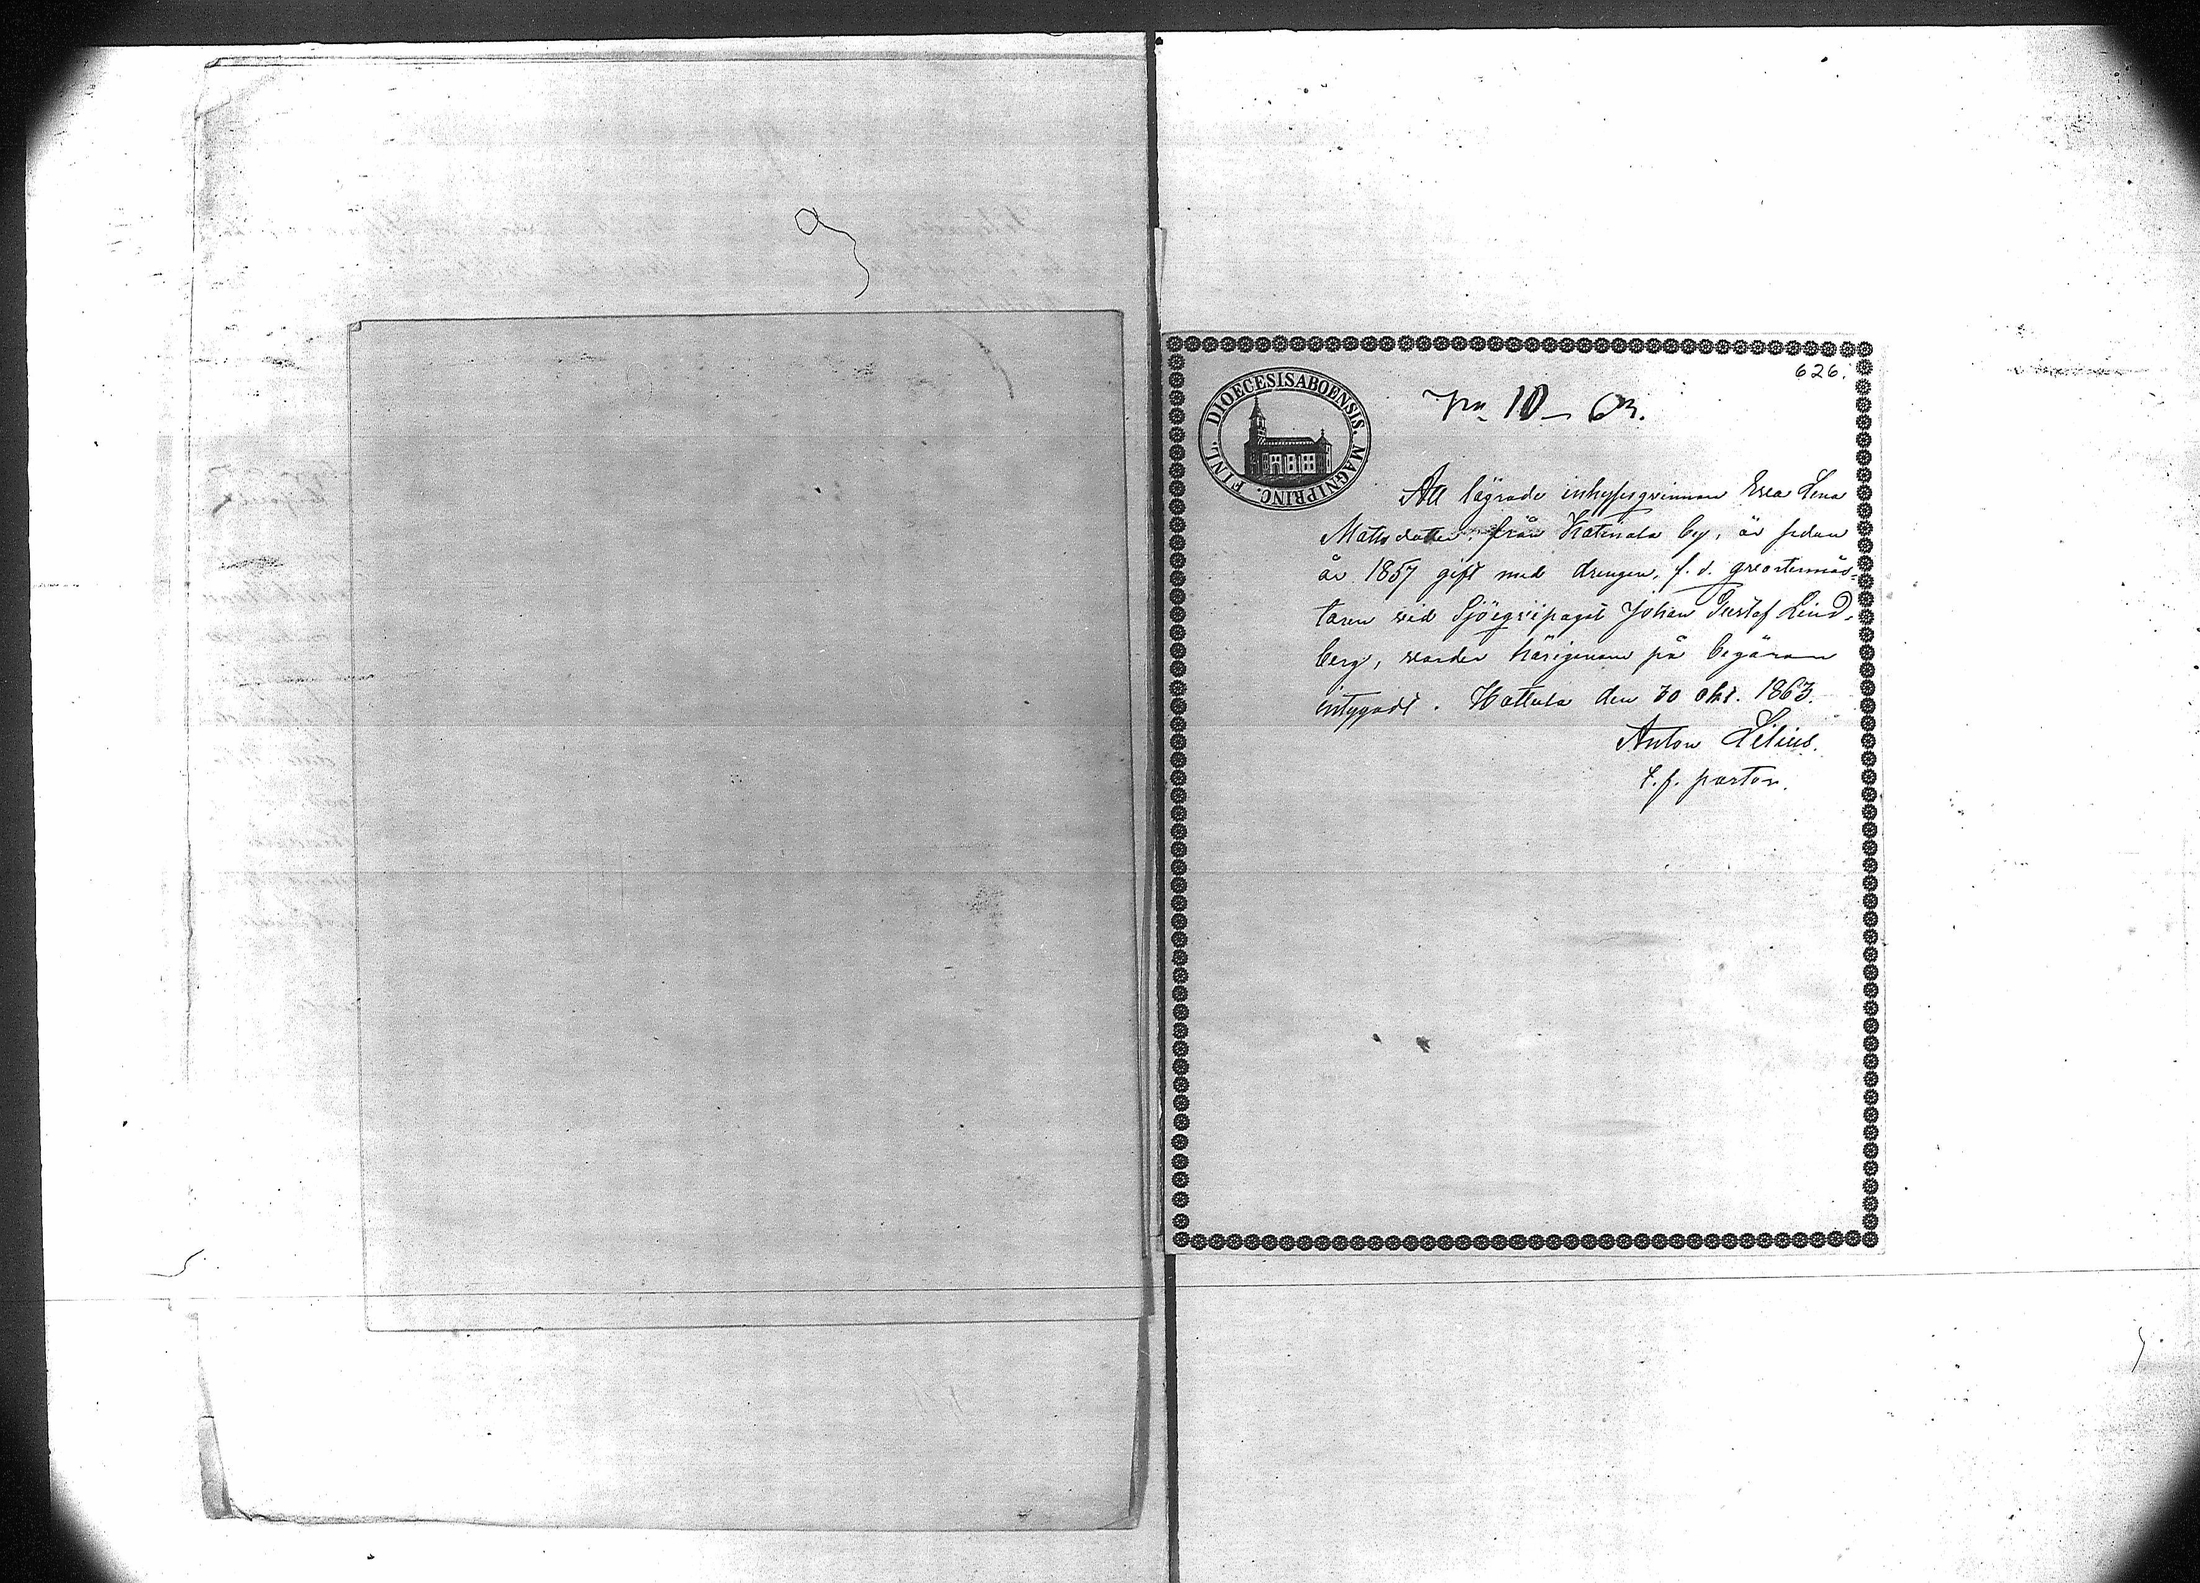 626.
DIOECESIS ABOENSIS. MAGNI PRINC. FINL.
10 — 63.
Att lägrade inhysesqvinnan Eva Lena
Mattsdotter, från Katinala by, är sedan
år 1857 gift med drengen, f. d. qvartermäs-
taren vid Sjöeqvipaget Johan Gustaf Lind-
berg, varder härigenom på begäran
intygadt. Hattula den 30 okt. 1863.
Anton Lilius.
t. f. pastor.